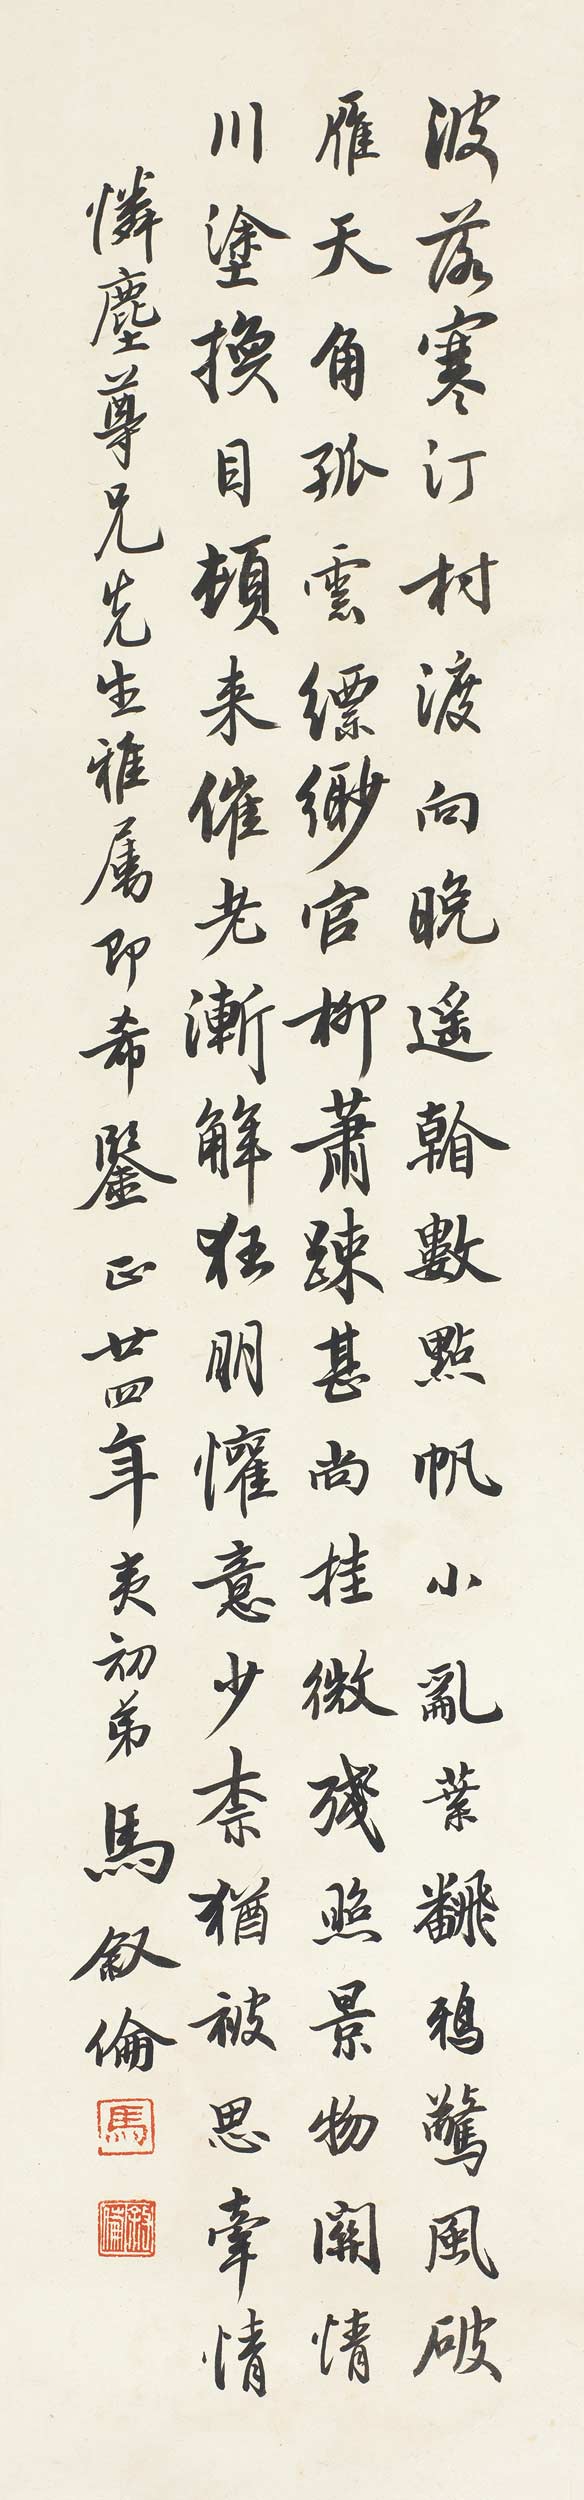 波落寒汀村渡向晚遙看數點帆小亂葉飜鴉驚風破
雁天角孤雲縹緲官柳蕭踈甚尚挂微殘照景物關情
川塗換目頓来催老漸解狂朋懽意少柰猶被思牽情
憐塵尊兄先生雅属即希鑒正廿四年夷初弟馬敘倫
馬
敘倫